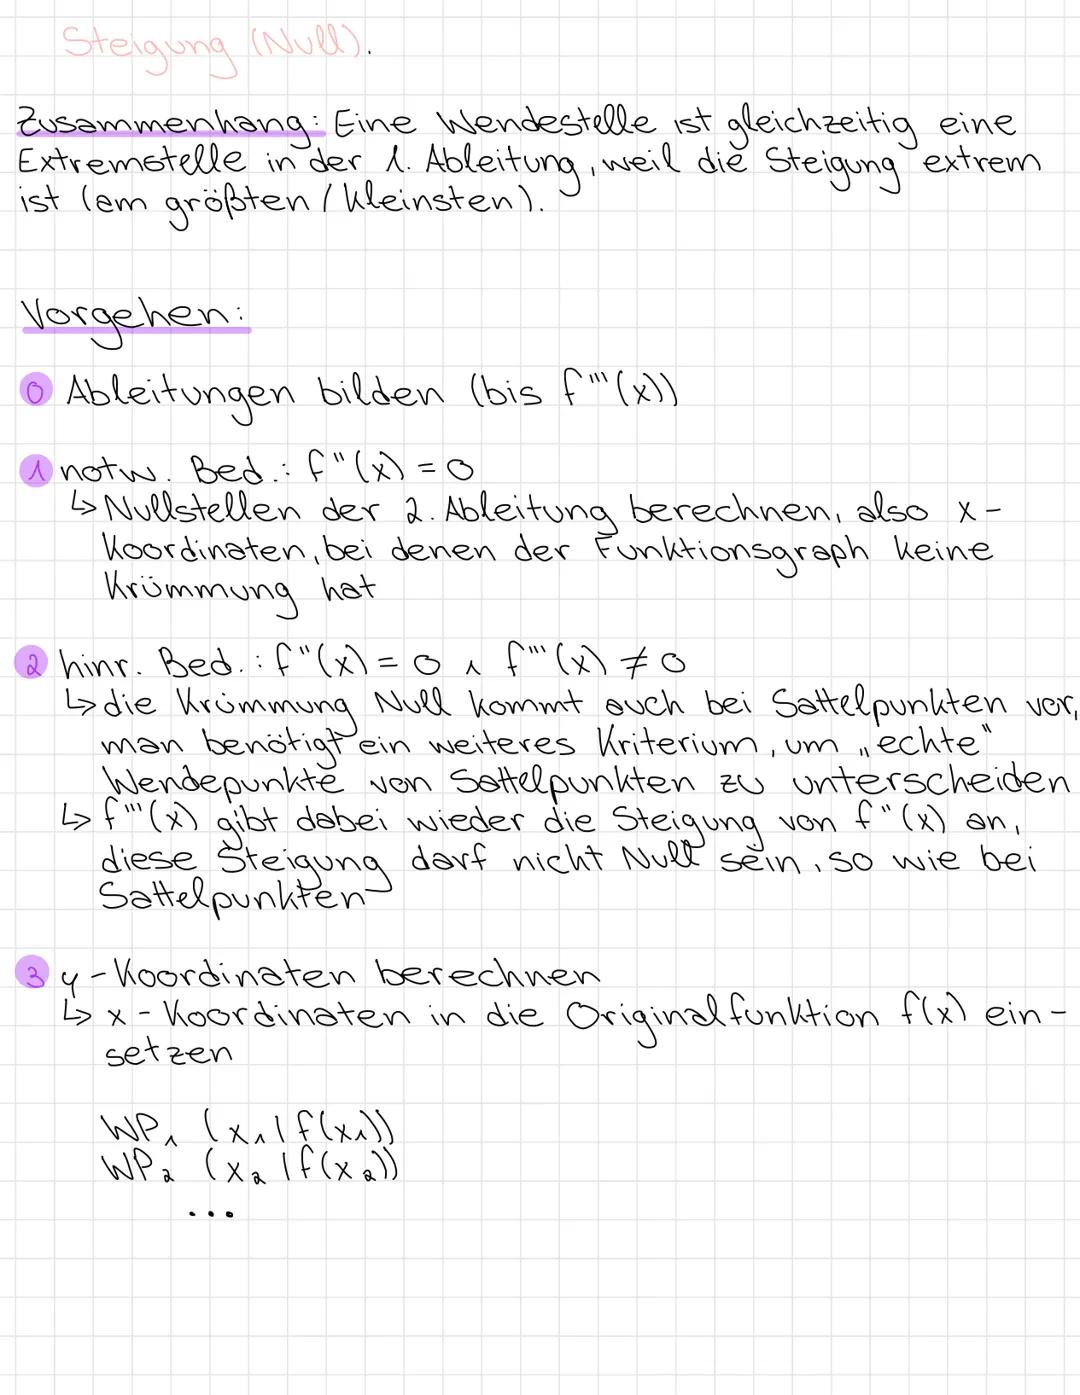 Steigung (Null).
Zusammenhang: Eine Wendestelle ist gleichzeitig eine
Extremstelle in der 1. Ableitung, weil die Steigung extrem
ist (am größten / kleinsten).
Vorgehen:
0 Ableitungen bilden (bis f'''(x))
1 notw. Bed.: f''(x) = 0
↳ Nullstellen der 2. Ableitung berechnen, also x-
Koordinaten, bei denen der Funktionsgraph keine
Krümmung hat
2 hinr. Bed.: f''(x) = 0 ∧ f'''(x) ≠ 0
↳ die Krümmung Null kommt auch bei Sattelpunkten vor,
man benötigt ein weiteres Kriterium, um „echte"
Wendepunkte von Sattelpunkten zu unterscheiden
↳ f'''(x) gibt dabei wieder die Steigung von f''(x) an,
diese Steigung darf nicht Null sein, so wie bei
Sattelpunkten
3 y-Koordinaten berechnen
↳ x-Koordinaten in die Originalfunktion f(x) ein-
setzen
WP₁ (x₁ | f(x₁))
WP₂ (x₂ | f(x₂))
...